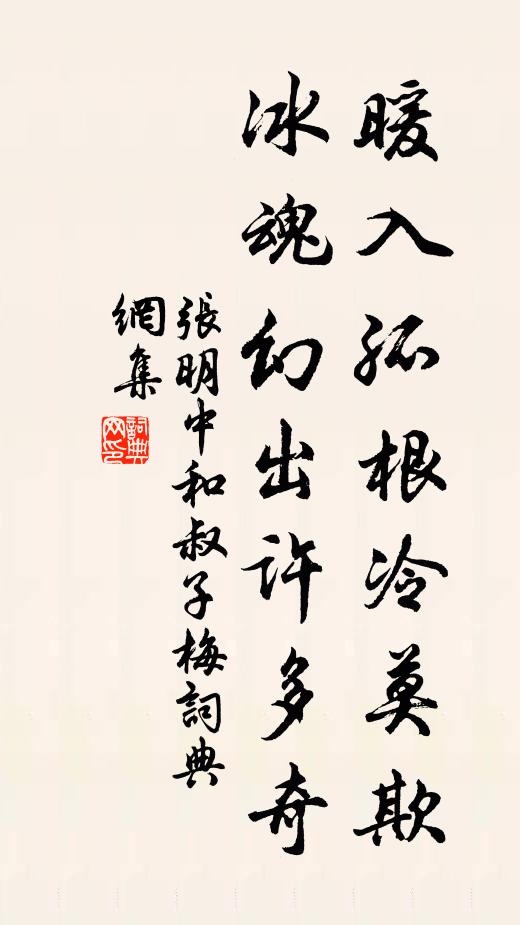 暖入孤根冷莫欺
冰魂幻出许多奇
張明中和叔子梅詞典
網集
詞典网印